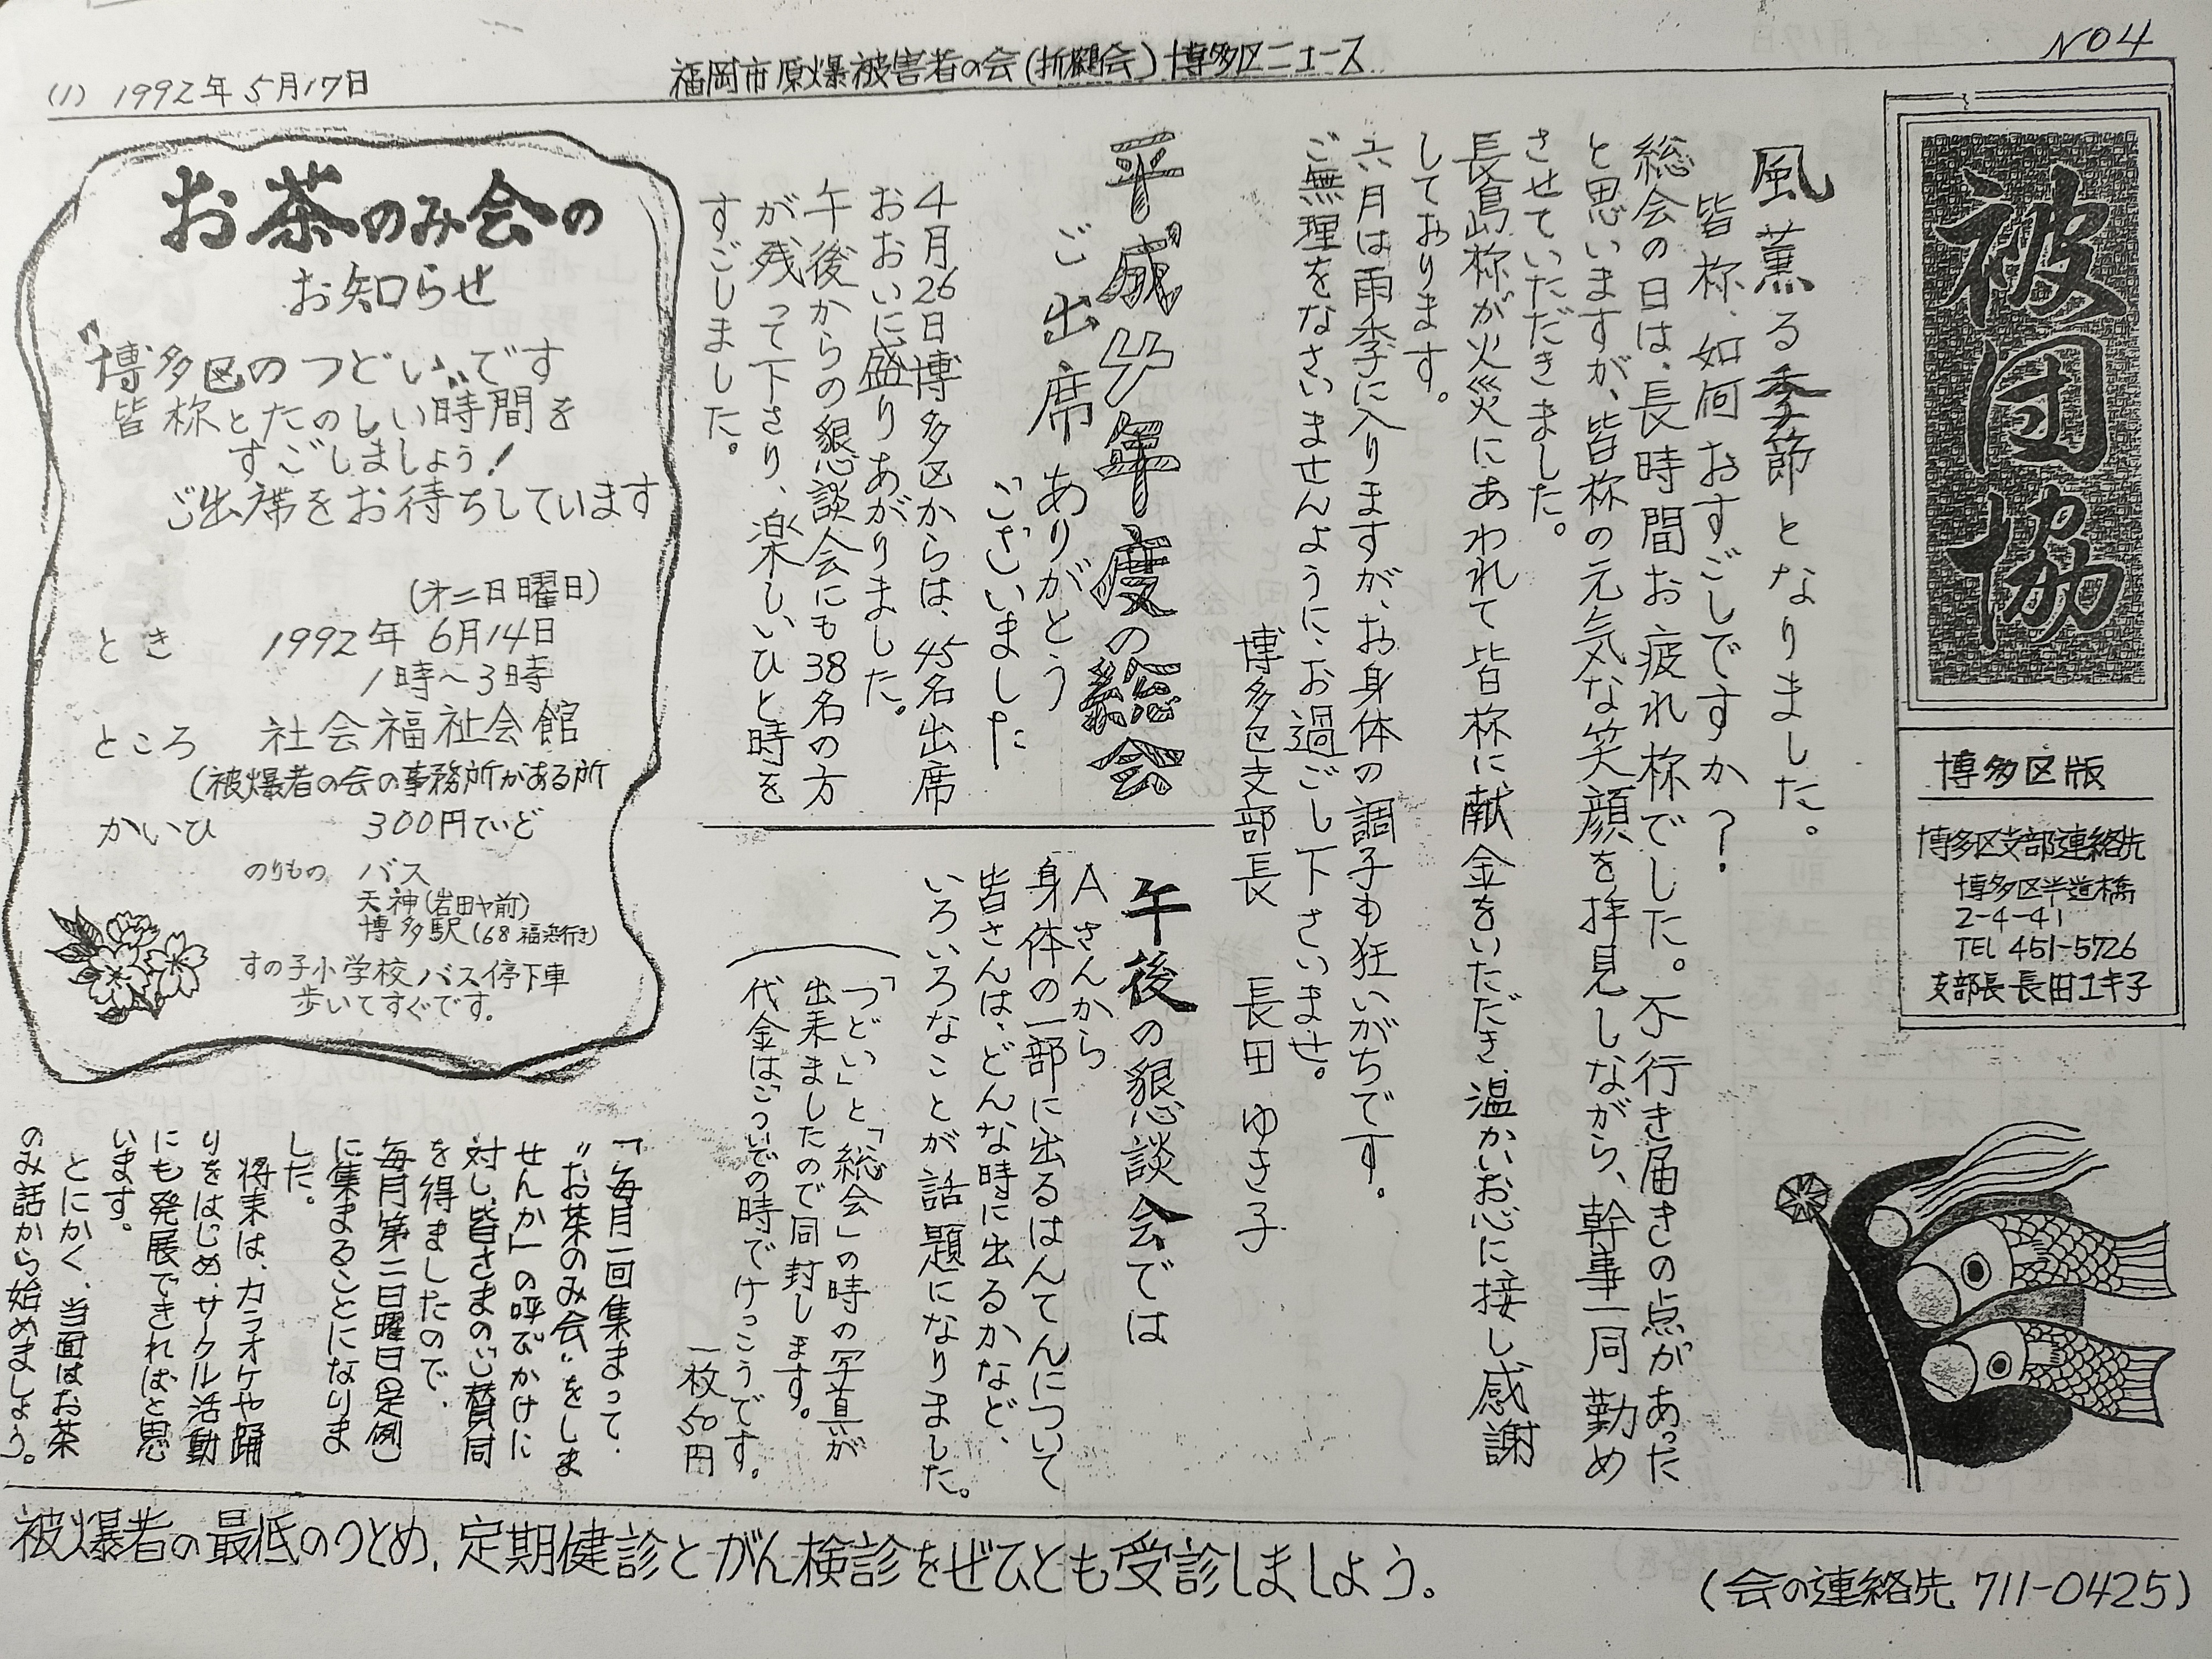 (1) 1992年5月17日
福岡市原爆被害者の会(折鶴会)博多区ニュース
NO4
被団協
博多区版
博多区支部連絡先
博多区半道橋
2-4-41
TEL 451-5726
支部長 長田ユキ子
風薫る季節となりました。
皆様、如何おすごしですか?
総会の日は、長時間お疲れ様でした。不行き届きの点があった
と思いますが、皆様の元気な笑顔を拝見しながら、幹事一同勤め
させていただきました。
長島様が火災にあわれて皆様に献金をいただき、温かいお心に接し感謝
しております。
六月は雨季に入りますが、お身体の調子も狂いがちです。
ご無理をなさいませんように、お過ごし下さいませ。
博多区支部長 長田 ゆき子
平成4年度の総会
ご出席ありがとう
ございました
4月26日博多区からは、45名出席
おおいに盛りあがりました。
午後からの懇談会にも38名の方
が残って下さり、楽しいひと時を
すごしました。
午後の懇談会では
Aさんから
身体の一部に出るはんてんについて
皆さんは、どんな時に出るかなど、
いろいろなことが話題になりました。
「つどい」と「総会」の時の写真が
出来ましたので同封します。
代金はついでの時でけっこうです。
一枚50円
お茶のみ会の
お知らせ
"博多区のつどい"です
皆様とたのしい時間を
すごしましょう!
ご出席をお待ちしています
(才二日曜日)
とき 1992年 6月14日
1時~3時
ところ 社会福祉会館
(被爆者の会の事務所がある所
かいひ 300円ていど
のりもの バス
天神(岩田ヤ前)
博多駅(68 行き)
すの子小学校バス停下車
歩いてすぐです。
「毎月一回集まって、
"お茶のみ会"をしま
せんか」の呼びかけに
対し、皆さまのご賛同
を得ましたので、
毎月第二日曜日定例
に集まることになりま
した。
将来は、カラオケや踊
りをはじめ、サークル活動
にも発展できればと思
います。
とにかく、当面はお茶
のみ話から始めましょう。
被爆者の最低のつとめ、定期健診とがん検診をぜひとも受診しましょう。
(会の連絡先 711-0425)